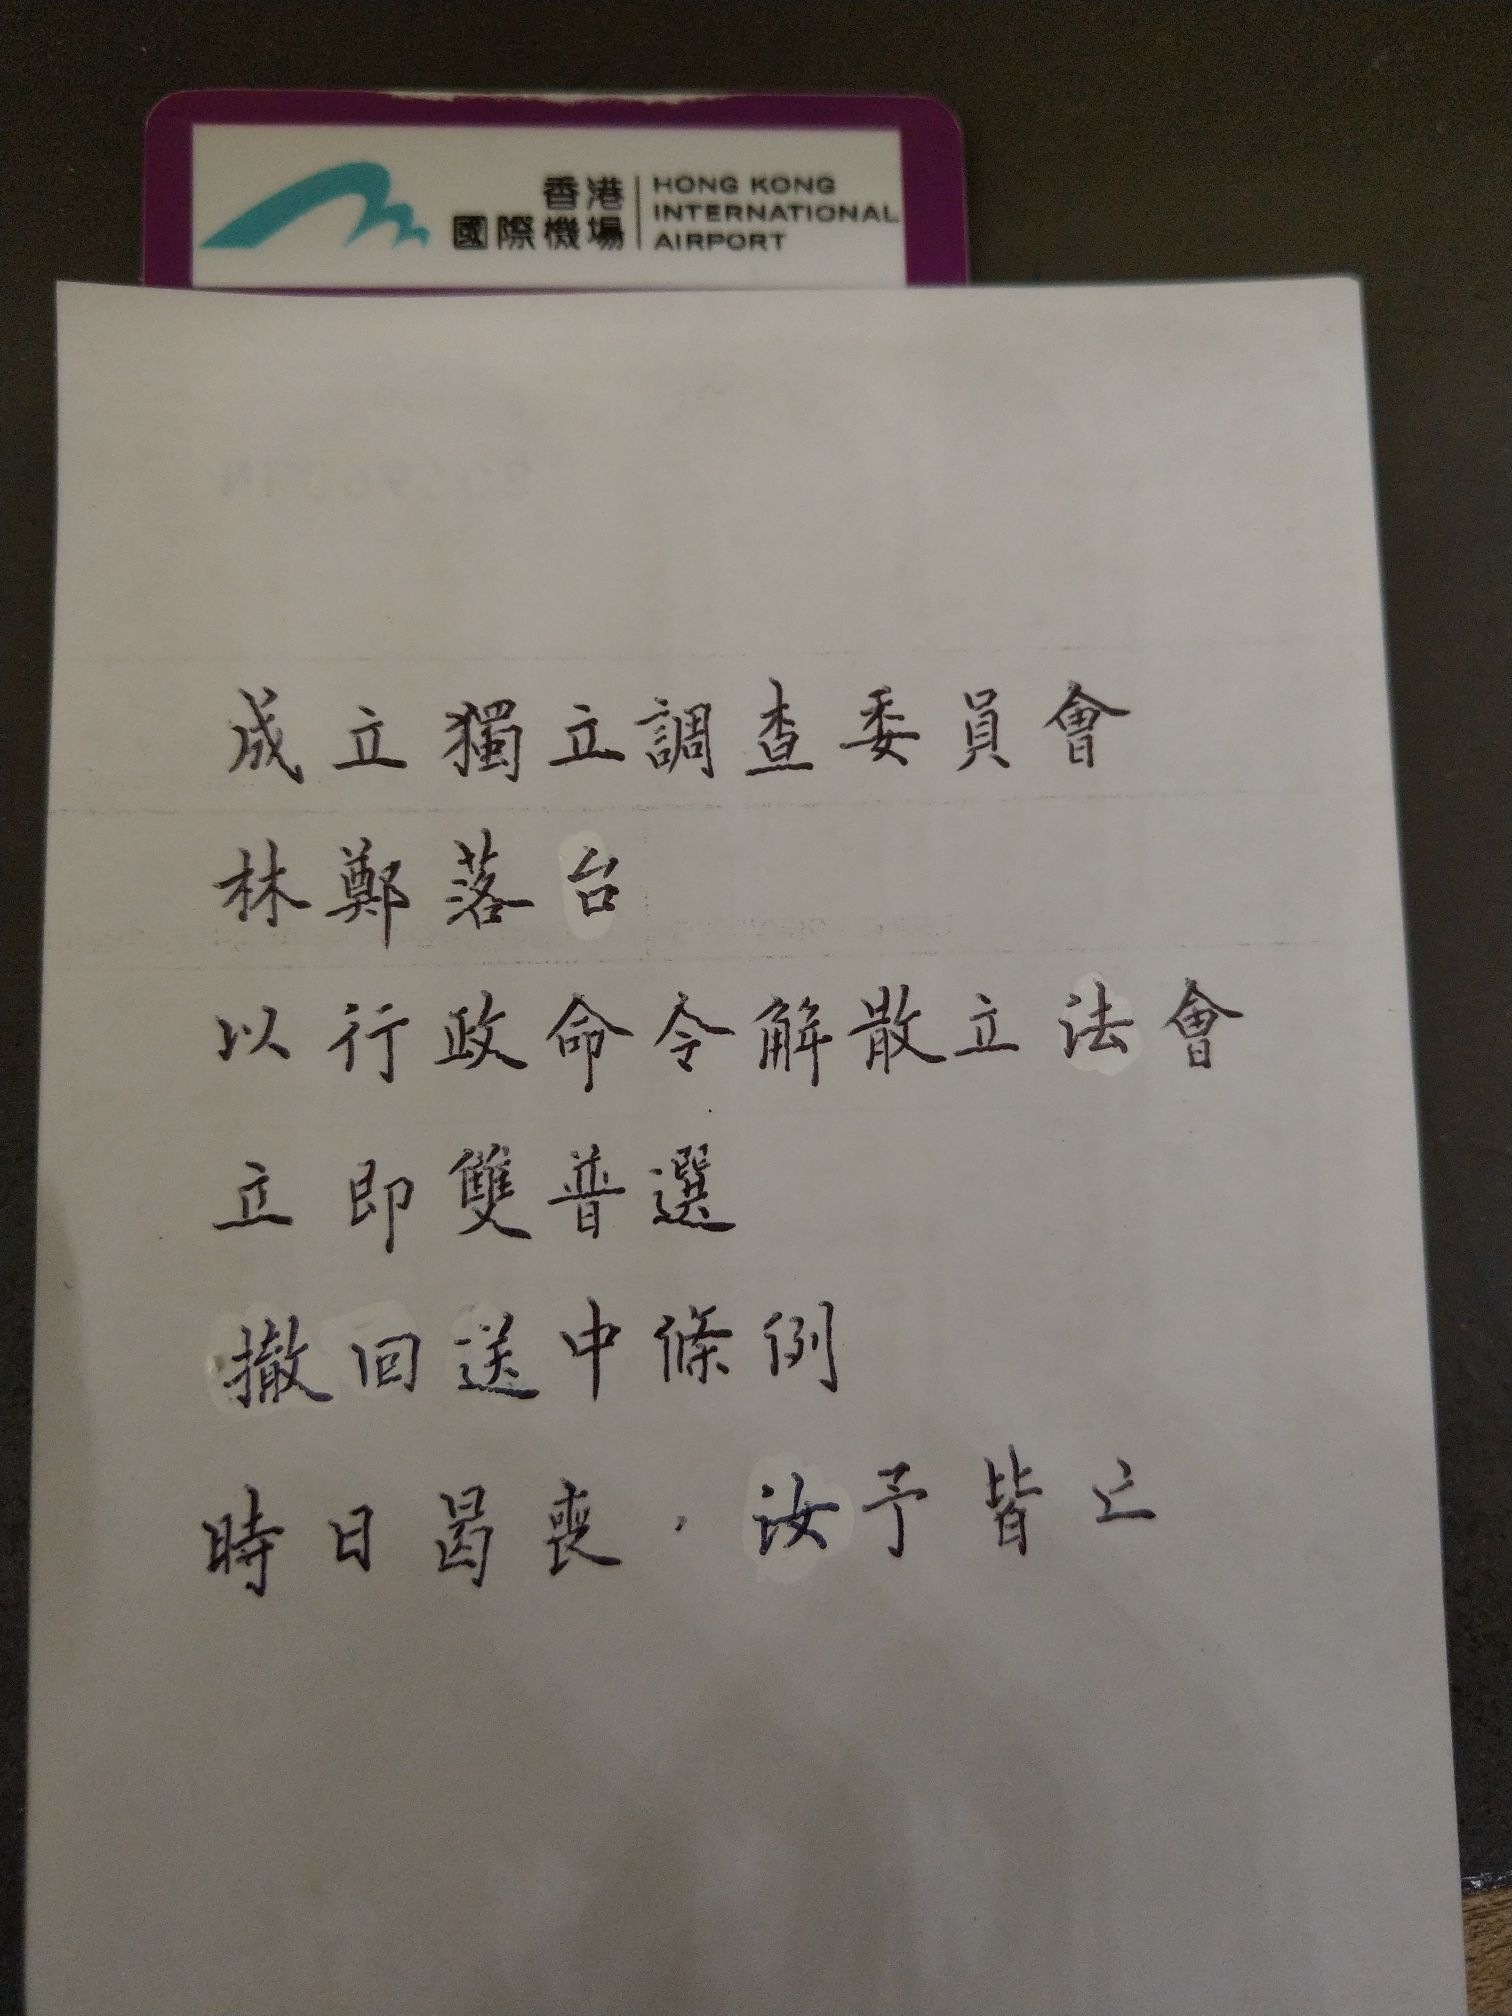 香港
國際機場
HONG KONG
INTERNATIONAL
AIRPORT
成立獨立調查委員會
林鄭落台
以行政命令解散立法會
立即雙普選
撤回送中條例
時日曷喪，汝予皆亡